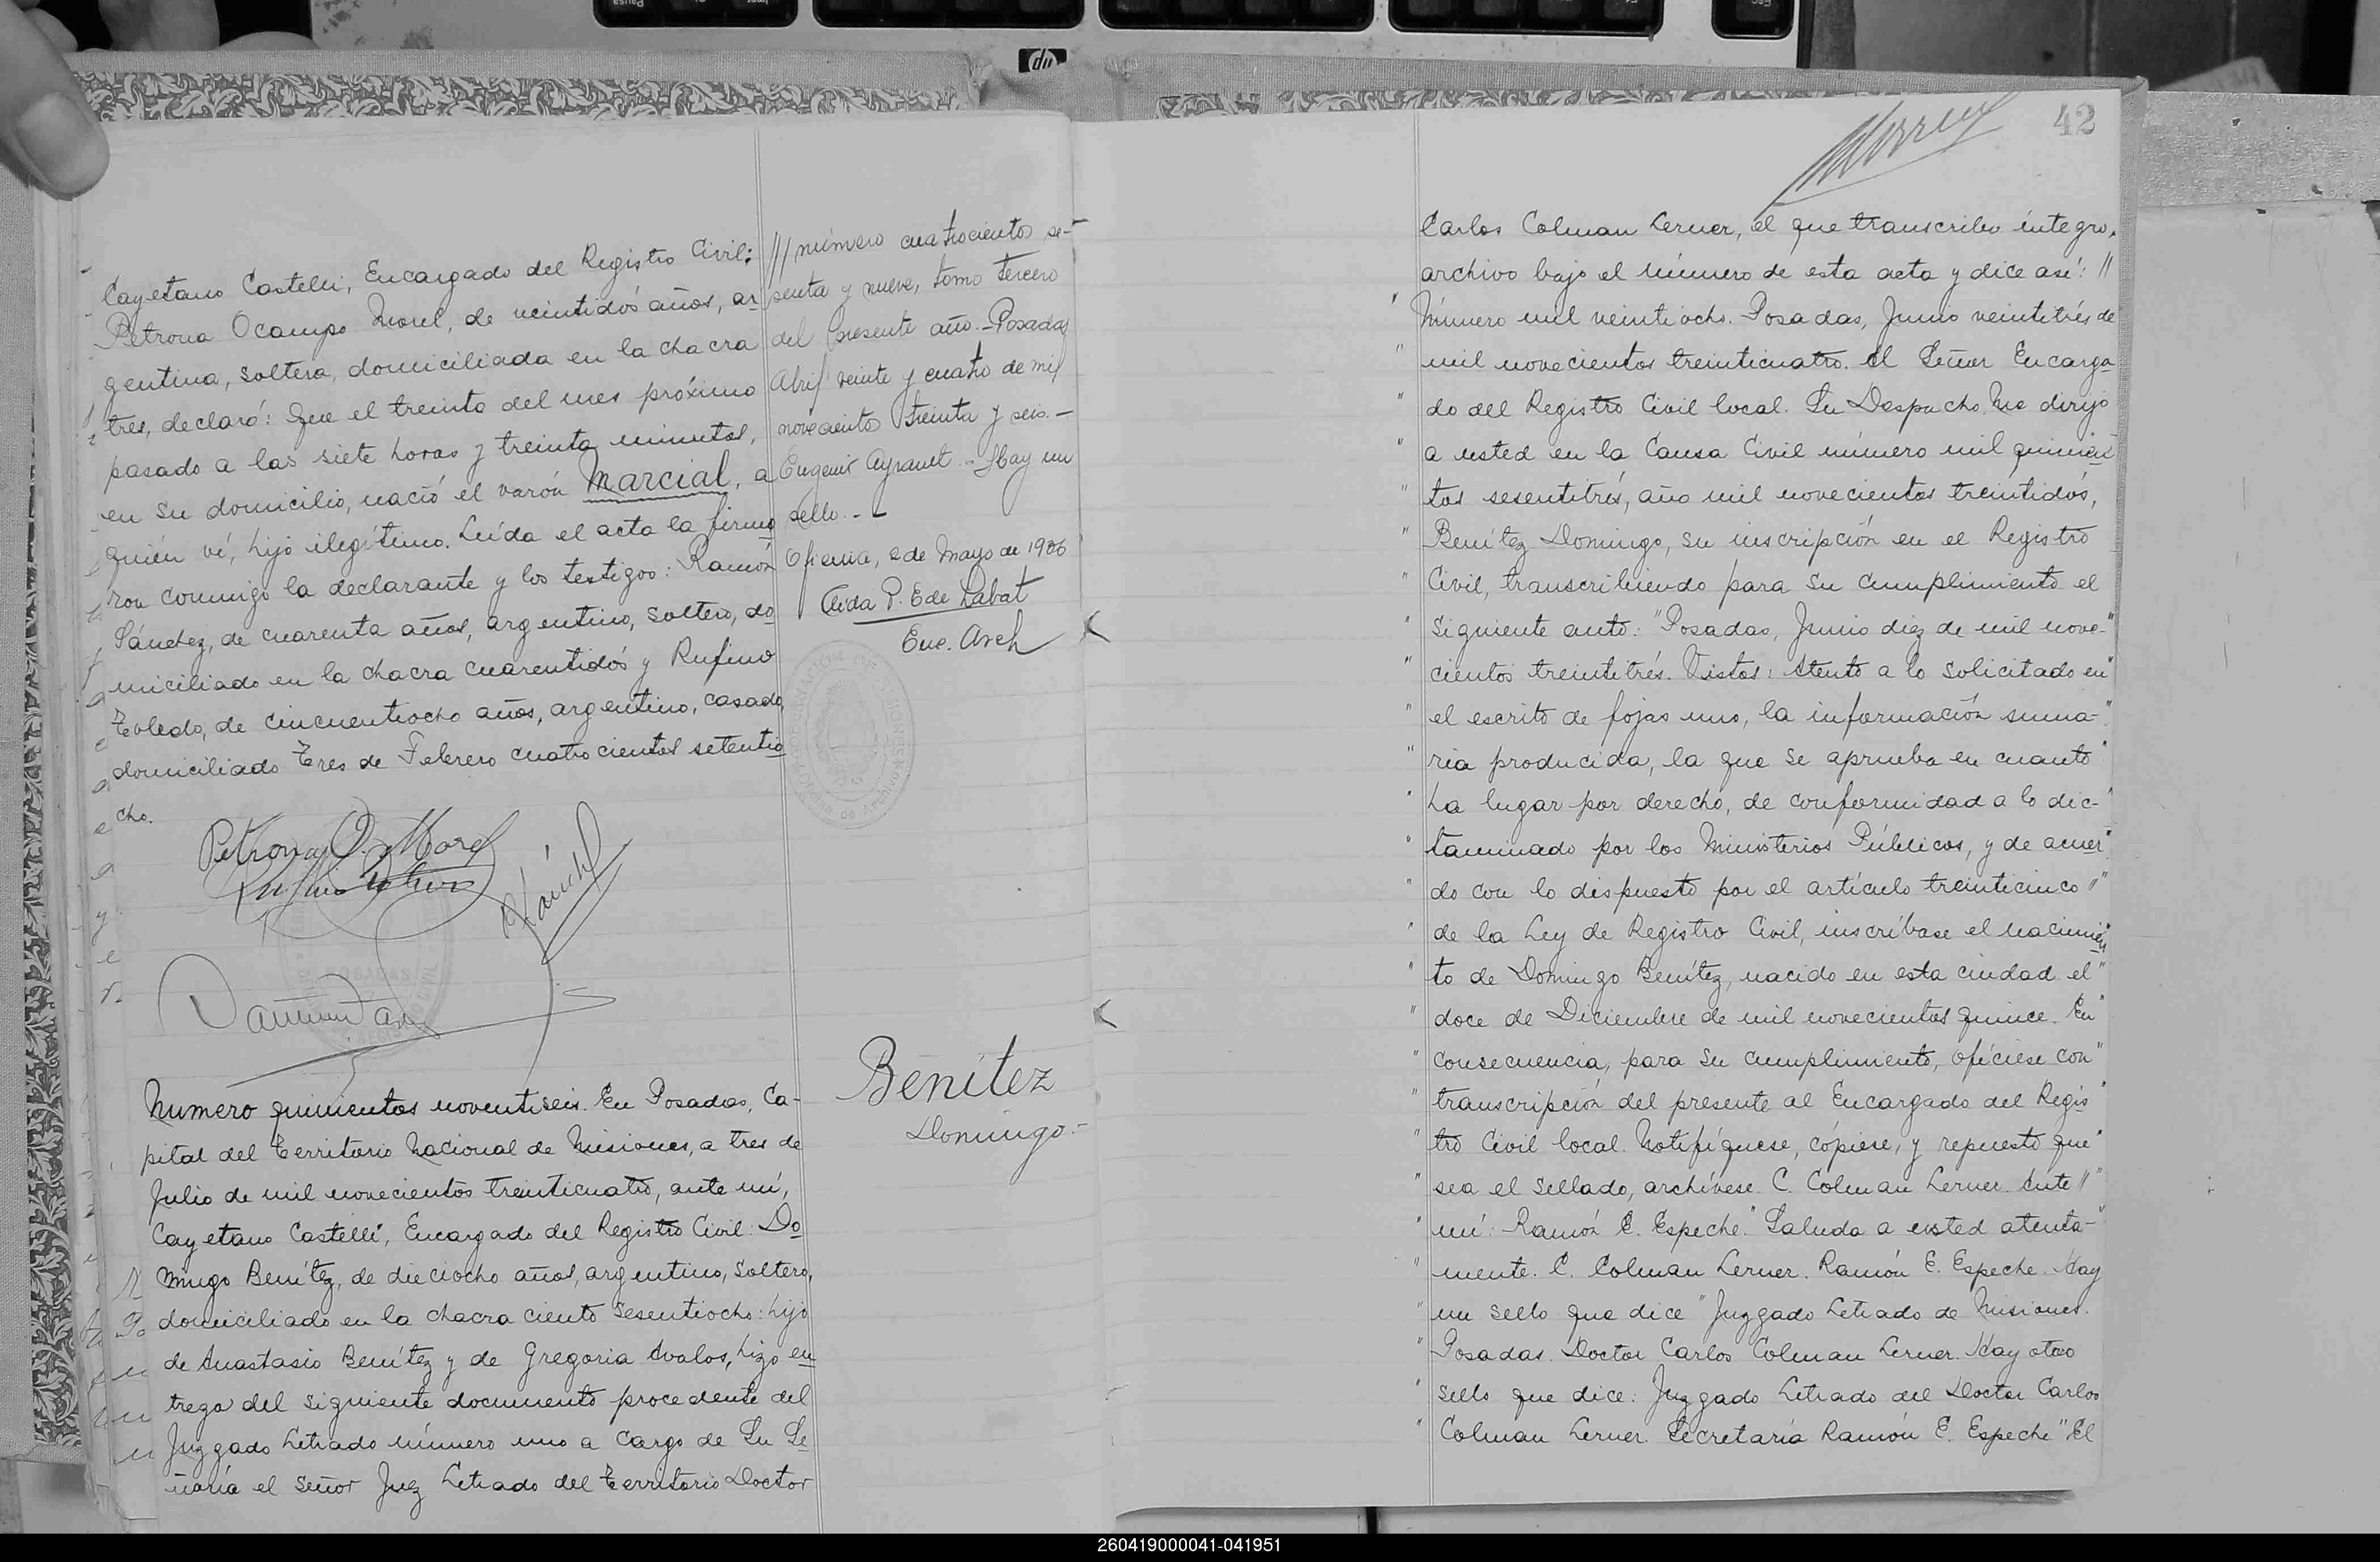 Cayetano Castelli, Encargado del Registro Civil:
Petrona Ocampo Morel, de veintidós años, ar
gentina, soltera, domiciliada en la chacra
tres, declaró: Que el treinta del mes próximo
pasado a las siete horas y treinta minutos,
en su domicilio, nació el varón Marcial, a
quién ví, hijo ilegítimo. Leída el acta la firma
ron conmigo la declarante y los testigos: Ramón
Sánchez, de cuarenta años, argentino, soltero, do
miciliado en la chacra cuarentidós y Rufino
Toledo, de cincuentiocho años, argentino, casado,
domiciliado Tres de Febrero cuatrocientos setentio
cho.
Petrona O. Morel
RSánchez
// número cuatrocientos se-
senta y nueve, tomo tercero
del presente año.-Posadas
Abril veinte y cuatro de mil
novecientos treinta y seis.-
Eugenio Ayrault.-Hay un
sello.-
Oficina, 2 de Mayo de 1936
Elida P. E de Labat
Enc. Arch
Numero quinientos noventiseis. En Posadas, Ca-
pital del Territorio Nacional de Misiones, a tres de
Julio de mil novecientos treinticuatro, ante mí,
Cayetano Castelli, Encargado del Registro Civil: Do
mingo Benítez, de dieciocho años, argentino, soltero,
domiciliado en la chacra ciento sesentiocho: hijo
de Anastasio Benítez y de Gregoria Avalos, hizo en
trega del siguiente documento procedente del
Juzgado Letrado número uno a cargo de Su Se
ñoría el Señor Juez Letrado del Territorio Doctor
Benítez
Domingo.-
42
Carlos Colman Lerner, el que transcribo íntegro,
archivo bajo el número de esta acta y dice así: //
" Número mil veintiocho. Posadas, Junio veintitrés de
" mil novecientos treinticuatro. Al Señor Encarga
" do del Registro Civil local. Su Despacho. Me dirijo
" a usted en la Causa Civil número mil quinien
" tos sesentitrés, año mil novecientos treintidós,
" Benítez Domingo, su inscripción en el Registro
" Civil, transcribiendo para su cumplimiento el
" siguiente auto: "Posadas, Junio diez de mil nove-"
" cientos treintitrés. Vistos: Atento a lo solicitado en"
" el escrito de fojas uno, la información suma-"
" ria producida, la que se aprueba en cuanto"
" ha lugar por derecho, de conformidad a lo dic-"
" taminado por los Ministerios Públicos, y de acuer"
" do con lo dispuesto por el artículo treinticinco //"
" de la Ley de Registro Civil, inscríbase el nacimien"
" to de Domingo Benítez, nacido en esta ciudad el"
" doce de Diciembre de mil novecientos quince. En"
" consecuencia, para su cumplimiento, ofíciese con"
" transcripción del presente al Encargado del Regis"
" tro Civil local. Notifíquese, cópiese, y repuesto que"
" sea el sellado, archívese. C. Colman Lerner. Ante //"
" mí: Ramón E. Espeche." Saluda a usted atenta-"
" mente. C. Colman Lerner. Ramón E. Espeche. Hay
" un sello que dice "Juzgado Letrado de Misiones.
" Posadas. Doctor Carlos Colman Lerner. Hay otro
" sello que dice: Juzgado Letrado del Doctor Carlos
" Colman Lerner. Secretaría Ramón E. Espeche" El
260419000041-041951